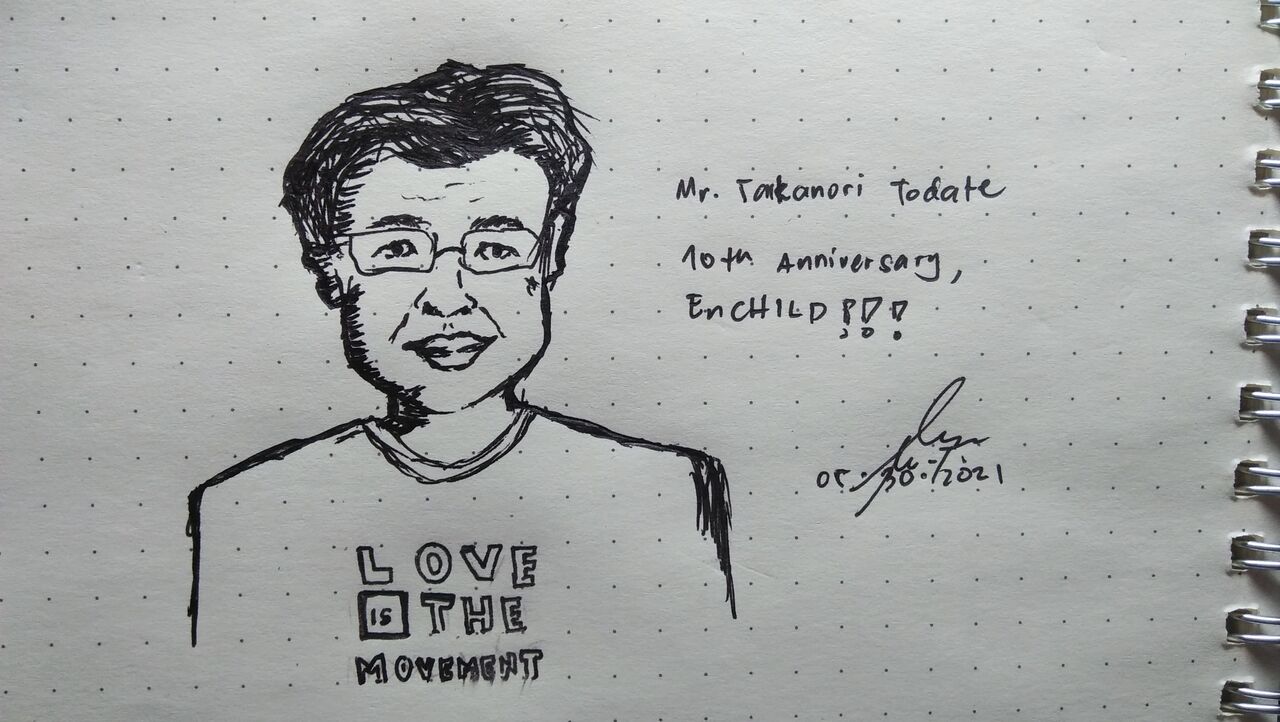 Mr. Takanori Todate
10th Anniversary,
EnCHILD!!!
05.30.2021
LOVE
IS THE
MOVEMENT